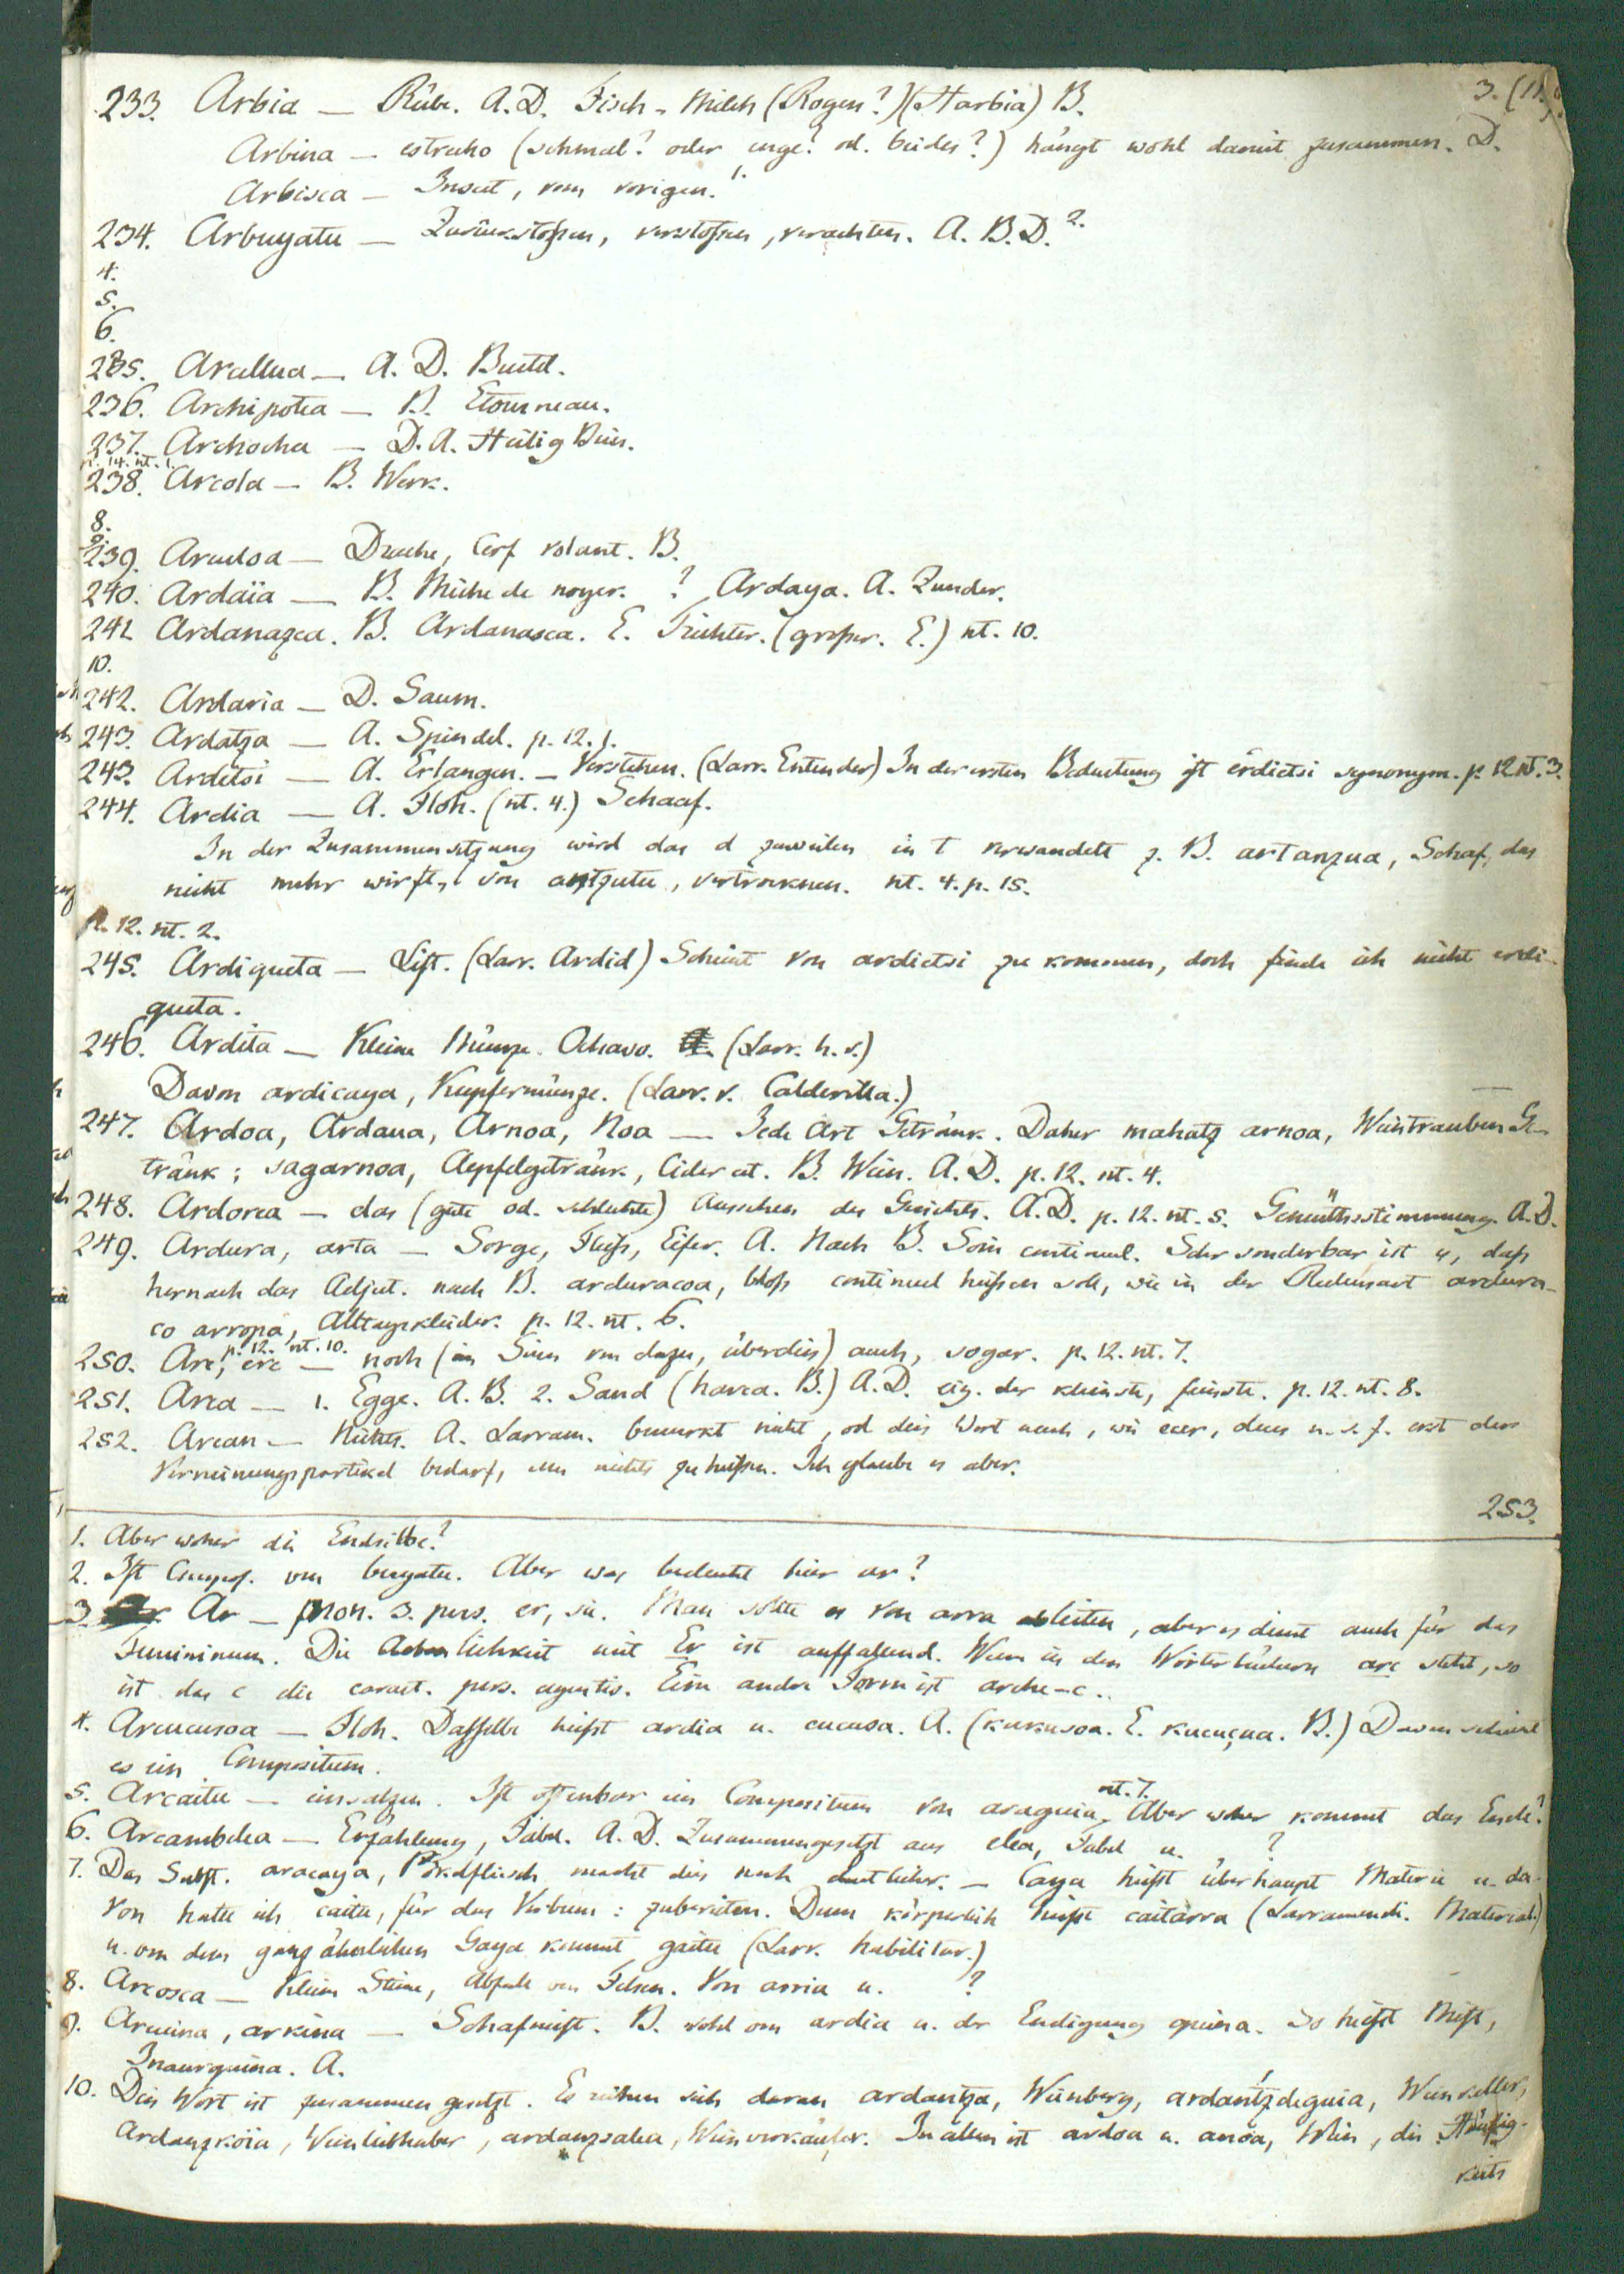 3. (11.)
233. Arbia — Rübe. A.D. Fisch-Milch (Rogen?) (Harbia) B.
Arbina — estracho (schmal? oder enge? od. beides?) hängt wohl damit zusammen. D.
Arbisca — Insect, vom vorigen. 1.
234. Arbuyatu — Zurückstoßen, verstoßen, verachten. A. B. D. 2.
4.
5.
6.
235. Arcallua — A. D. Beutel.
236. Archipotea — B. Etourneau.
237. Archocha — D. A. Heilig Bein.
p. 14. nt. 1.
238. Arcola — B. Werk.
8.
9.
239. Arculoa — Drache, Cerf volant. B.
240. Ardaïa — B. Mèche de noyer. ? Ardaya. A. Zunder.
241. Ardanazea. B. Ardanasca. E. Trichter. (großer. E.) nt. 10.
10.
242. Ardaria — D. Saum.
243. Ardatza — A. Spindel. p. 12. 1.
243. Ardetsi — A. Erlangen. — Verstehen. (Larr. Entender) In der ersten Bedeutung ist erdietsi synonym. p. 12 nt. 3.
244. Ardia — A. Floh. (nt. 4.) Schaaf.
In der Zusammensetzung wird das d zuweilen in t verwandelt z. B. artanzua, Schaf, das
nicht mehr wirft, von antzutu, vertrocknen. nt. 4. p. 15.
p. 12. nt. 2.
245. Ardiqueta — List. (Larr. Ardid) Scheint von ardietsi zu kommen, doch finde ich nicht erdi-
queta.
246. Ardita — Kleine Münze. Ochavo. (Larr. h. v.)
Davon ardicaya, Kupfermünze. (Larr. v. Calderilla.)
247. Ardoa, Ardaua, Arnoa, Noa — Jede Art Getränk. Daher mahatz arnoa, Weintrauben Ge-
tränk; sagarnoa, Aepfelgetränk, Cider et. B. Wein. A. D. p. 12. nt. 4.
248. Ardorea — das (gute od. schlechte) Aussehen des Gesichts. A. D. p. 12. nt. 5. Gemüthsstimmung. A. D.
249. Ardura, arta — Sorge, Fleiß, Eifer. A. Nach B. Soin continuel. Sehr sonderbar ist es, daß
hernach das Adject. nach B. arduracoa, bloß continuel heißen soll, wie in der Redensart ardura-
co arropa, Alltagskleider. p. 12. nt. 6.
p. 12. nt. 10.
250. Are, ere — noch (im Sinn von dazu, überdies) auch, sogar. p. 12. nt. 7.
251. Area — 1. Egge. A. B. 2. Sand (harea. B.) A. D. eig. der kleinste, feinste. p. 12. nt. 8.
252. Arean — Nichts. A. Larram. bemerkt nicht, ob dies Wort auch, wie ecer, deus u. s. f. erst der
Verneinungspartikel bedarf, um nichts zu heißen. Ich glaube es aber.
253.
1. Aber woher die Endsilbe?
2. Ist Compos. von buyatu. Aber was bedeutet hier ar?
3. Ar — pron. 3. pers. er, sie. Man sollte es von arra ableiten, aber es dient auch für das
Femininum. Die Aehnlichkeit mit Er ist auffallend. Wenn in den Wörterbüchern arc steht, so
ist das c die caract. pers. agentis. Eine andre Form ist arche-c..
4. Arcucusoa — Floh. Dasselbe heißt ardia u. cucusa. A. (kukusoa. E. kucuçua. B.) Davon scheint
es ein Compositum.
5. Arcaitu — einsalzen. Ist offenbar ein Compositum von araguia, nt. 7. Aber woher kommt das Ende?
6. Arcambelea — Erzählung, Fabel. A. D. Zusammengesetzt aus elea, Fabel u. ?
7. Das Subst. aracaya, Pökelfleisch macht dies noch deutlicher. — Caya heißt überhaupt Materie u. da-
von hatte ich caitu, für das Verbum: zubereiten. Denn körperlich heißt caitarra (Larramendi. Material)
u. von dem ganz ähnlichen Gaya kommt gaitu (Larr. habilitar.)
8. Arcosca — Kleine Steine, Abfall von Felsen. Von arria u. ?
9. Arcuina, arkina — Schafmist. B. wohl von ardia u. der Endigung quina. So heißt Mist,
Inaurquina. A.
10. Dies Wort ist zusammen gesetzt. Es reihen sich daran ardantza, Weinberg, ardantzdeguia, Weinkeller,
Ardanzkoia, Weinliebhaber, ardanzsalea, Weinverkäufer. In allen ist ardoa u. anoa, Wein, die Häufig-
keits